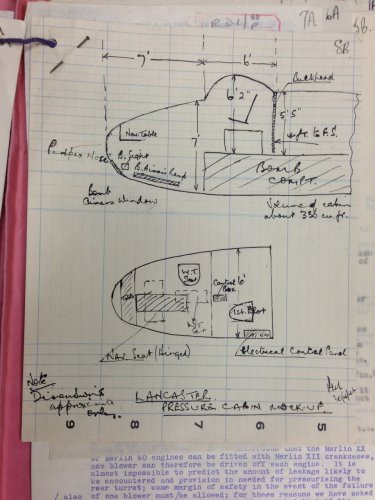 7A 6A
5B.
5B
7'
6'
Bulkhead
6' 2"
5' 5"
Nav. Table
7'
Perspex Nose
B. Sight
B. Aimers Ramp
Bomb
Aimers Window
Bomb
Comp't.
Volume of cabin
about 350 cu. ft.
W.T.
Seat
Control
Box
6'
1st. Pilot
Nav. Seat (Hinged)
Electrical Control Panel
Note
Dimensions
approximate
only.
LANCASTER
PRESSURE CABIN MOCK-UP.
9
8
7
6
5
that the Merlin XX
or Merlin 60 engines can be fitted with Merlin XII crankcases,
one blower can therefore be driven off each engine. It is
almost impossible to predict the amount of leakage likely to
be encountered and provision is needed for pressurising the
rear turret; some margin of safety in the event of the failure
also of one blower must be allowed; for these reasons we have asked